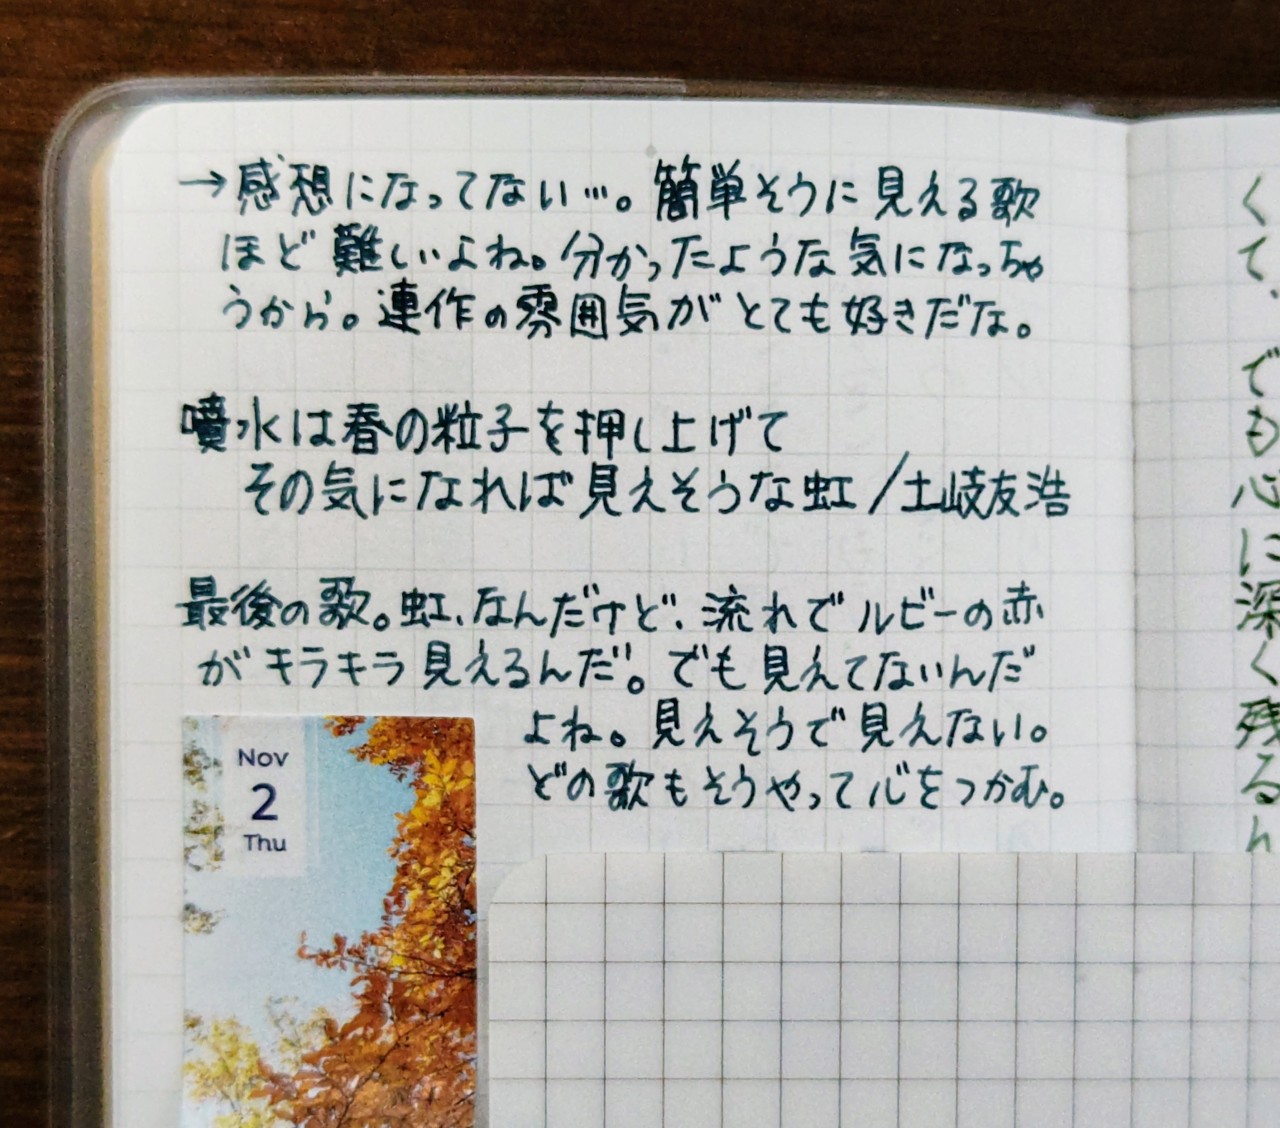 →感想になってない…。簡単そうに見える歌
ほど難しいよね。分かったような気になっちゃ
うから。連作の雰囲気がとても好きだな。
噴水は春の粒子を押し上げて
その気になれば見えそうな虹/土岐友浩
最後の歌。虹、なんだけど、流れでルビーの赤
がキラキラ見えるんだ。でも見えてないんだ
よね。見えそうで見えない。
どの歌もそうやって心をつかむ。
Nov
2
Thu
く
て、
でも心に深く残る